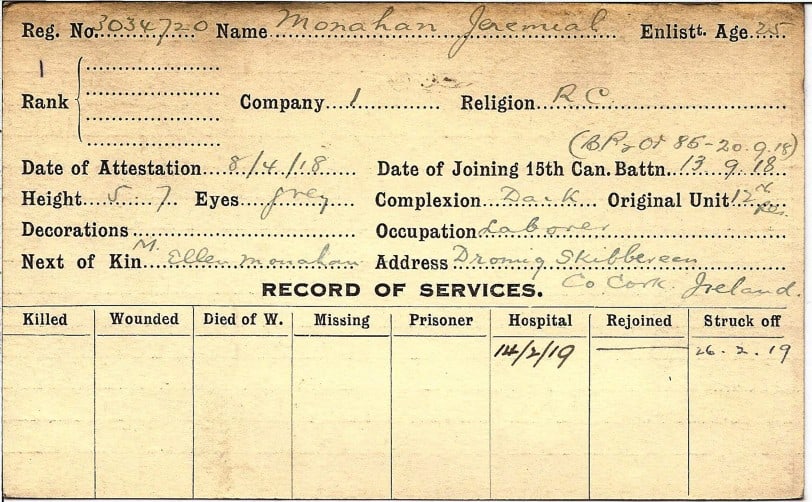 Reg. No. 3034720 Name Monahan Jeremial Enlistt. Age 25
1
Rank Company 1 Religion R C
(BP2 Or 85-20.9.18)
Date of Attestation 8/4/18 Date of Joining 15th Can. Battn. 13 9.18
Height 5 7 Eyes grey Complexion Dark Original Unit 12th Res.
Decorations Occupation Laborer
Next of Kin M. Ellen Monahan Address Dromig Skibbereen
Co Cork. Ireland.
RECORD OF SERVICES.
Killed Wounded Died of W. Missing Prisoner Hospital Rejoined Struck off
14/2/19 26.2.19